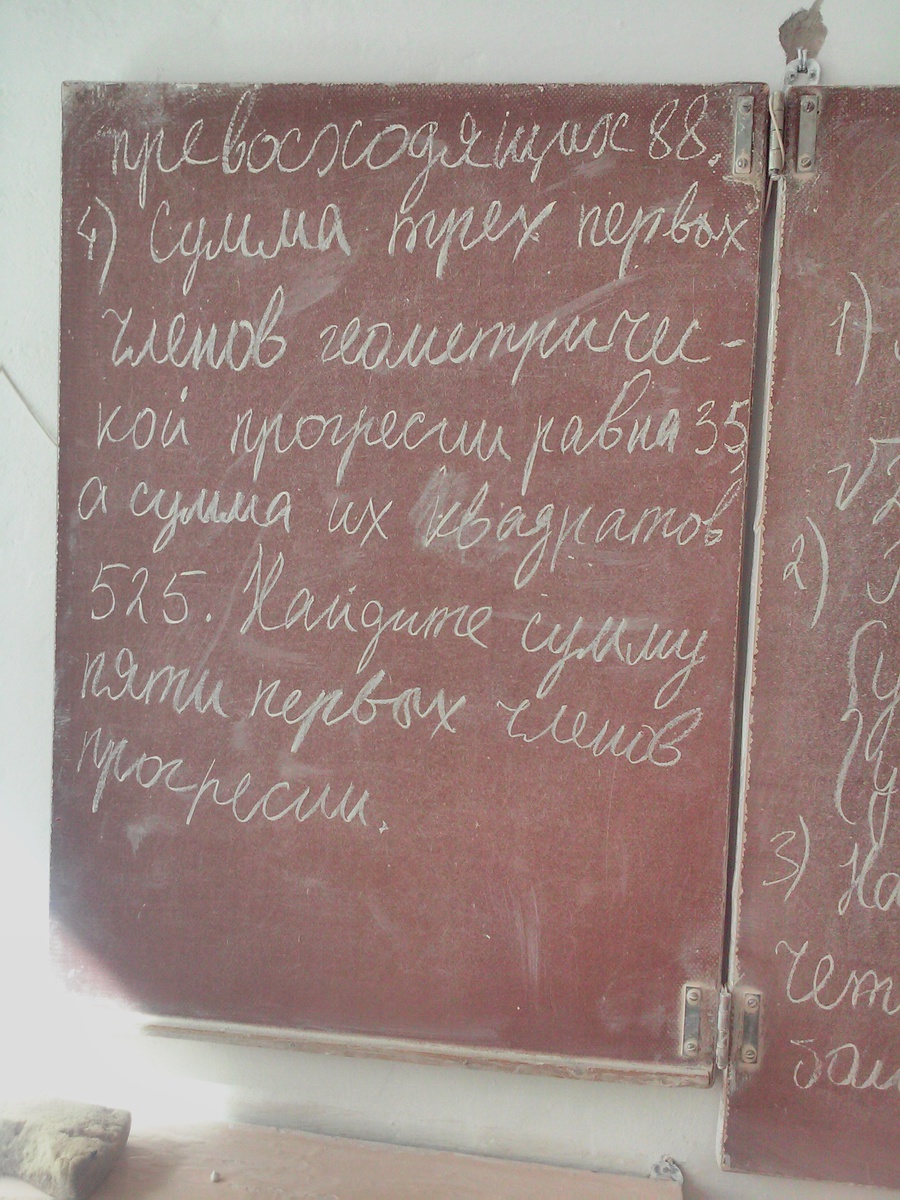 превосходящих 88.
4) Сумма трех первых
членов геометричес-
кой прогресии равна 35,
а сумма их квадратов
525. Найдите сумму
пяти первых членов
прогресии.
1)
√2
2)
3) На
чет